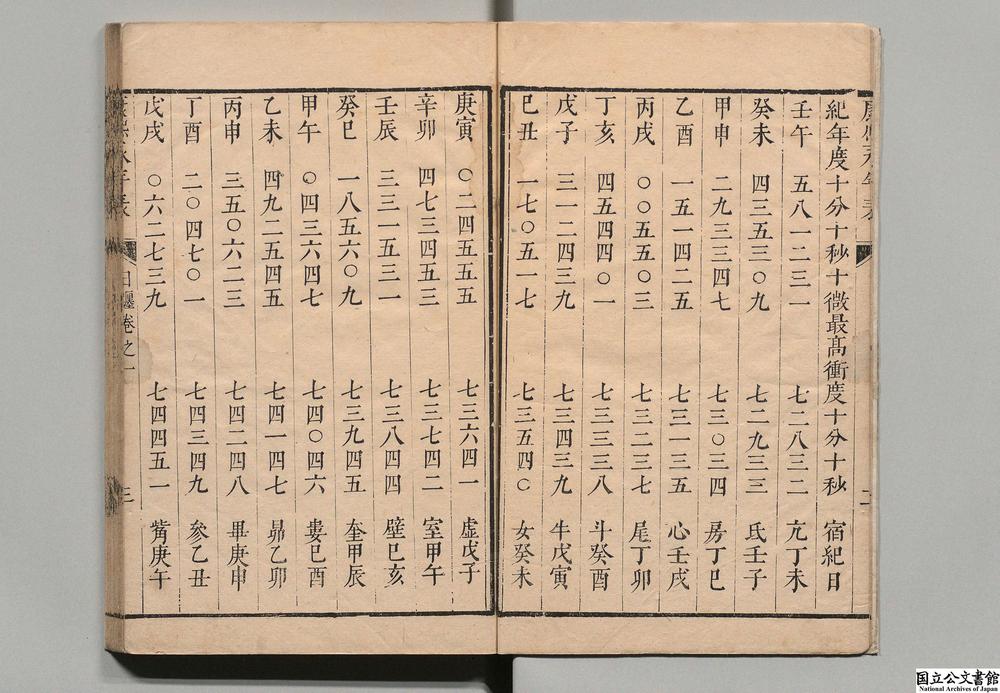 紀年度十分十秒十微最高衝度十分十秒 宿紀日
壬午 五八一二三一 七二八三二 亢丁未
癸未 四三五三〇九 七二九三三 氐壬子
甲申 二九三三四七 七三〇三四 房丁巳
乙酉 一五一四二五 七三一三五 心壬戌
丙戌 〇〇五五〇三 七三二三七 尾丁卯
丁亥 四五四四〇一 七三三三八 斗癸酉
戊子 三一二四三九 七三四三九 牛戊寅
己丑 一七〇五一七 七三五四〇 女癸未
二
庚寅 〇二四五五五 七三六四一 虛戊子
辛卯 四七三四五三 七三七四二 室甲午
壬辰 三三一五三一 七三八四四 壁己亥
癸巳 一八五六〇九 七三九四五 奎甲辰
甲午 〇四三六四七 七四〇四六 婁己酉
乙未 四九二五四五 七四一四七 昴乙卯
丙申 三五〇六二三 七四二四八 畢庚申
丁酉 二〇四七〇一 七四三四九 參乙丑
戊戌 〇六二七三九 七四四五一 觜庚午
日躔卷之一 三
国立公文書館
National Archives of Japan